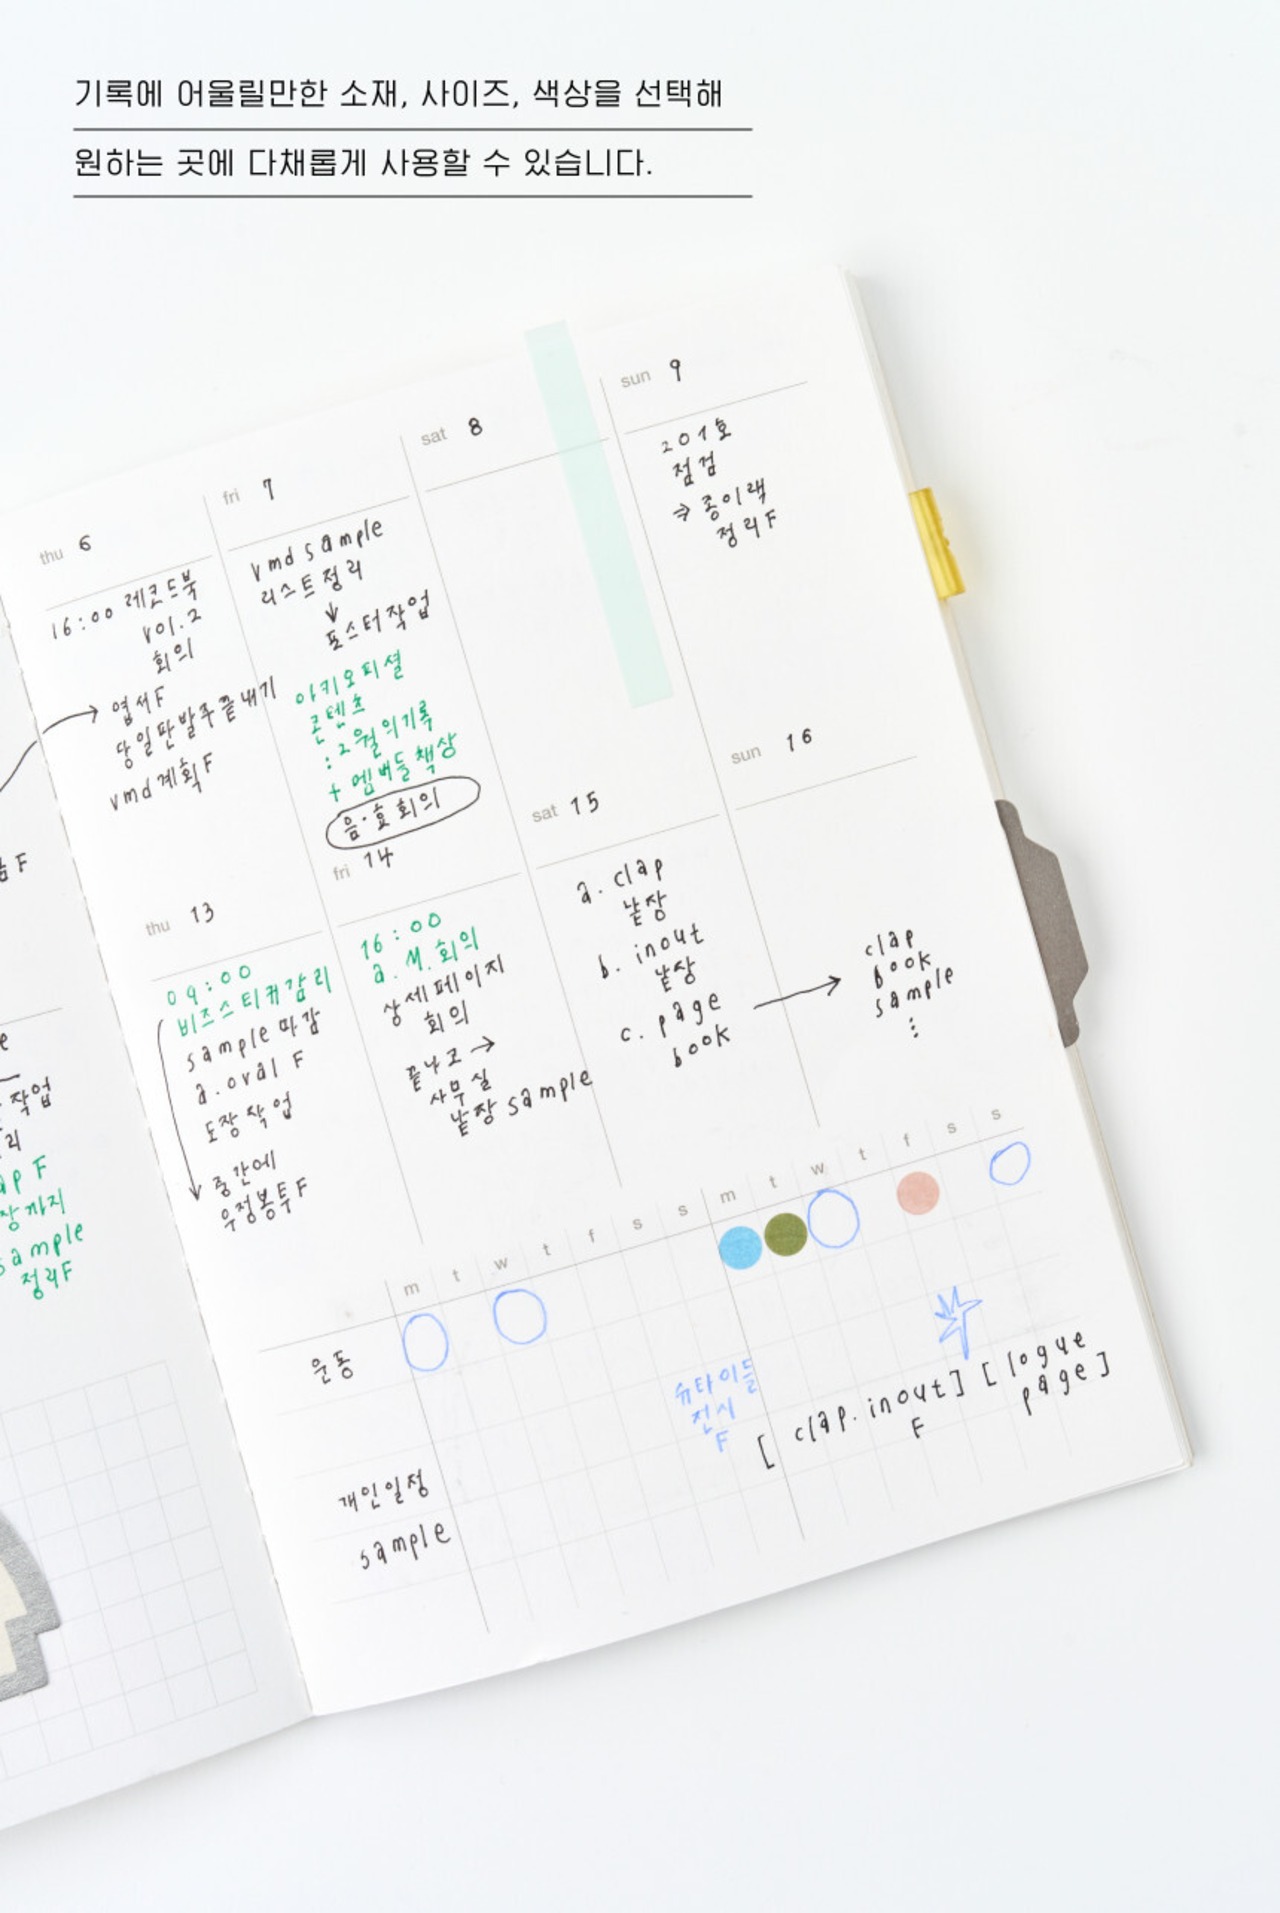 기록에 어울릴만한 소재, 사이즈, 색상을 선택해
원하는 곳에 다채롭게 사용할 수 있습니다.
thu 6
16:00 레코드북
vol.2
회의
엽서F
당일판발주끝내기
vmd계획F
fri 7
vmd sample
리스트정리
↓
포스터작업
아키오피셜
콘텐츠
:2월의기록
+ 멤버들책상
음·효회의
sat 8
sun 9
201호
점검
⇒ 종이랙
정리F
F
thu 13
09:00
비즈스티커감리
sample 마감
a.oval F
도장작업
중간에
우정봉투F
fri 14
16:00
a.M.회의
상세페이지
회의
끝나고→
사무실
낱장 sample
sat 15
a. clap
낱장
b. inout
낱장
c. page
book
sun 16
clap
book
sample
⋮
e
작업
리
ap F
장까지
sample
정리F
m t w t f s s m t w t f s s
운동
개인일정
sample
슈타이들
전시
F
[ clap. inout] [logue
F page]